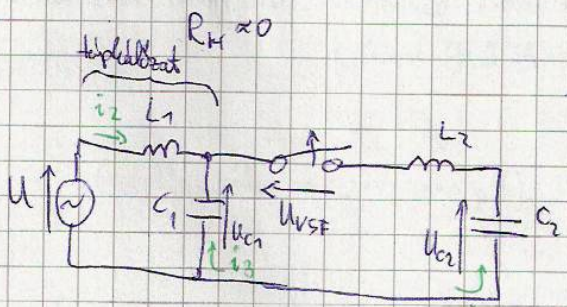 R_H ≈ 0
táphálózat
i₂
L₁
L₂
U
C₁
U_C1
U_VSF
U_C2
C₂
i₃